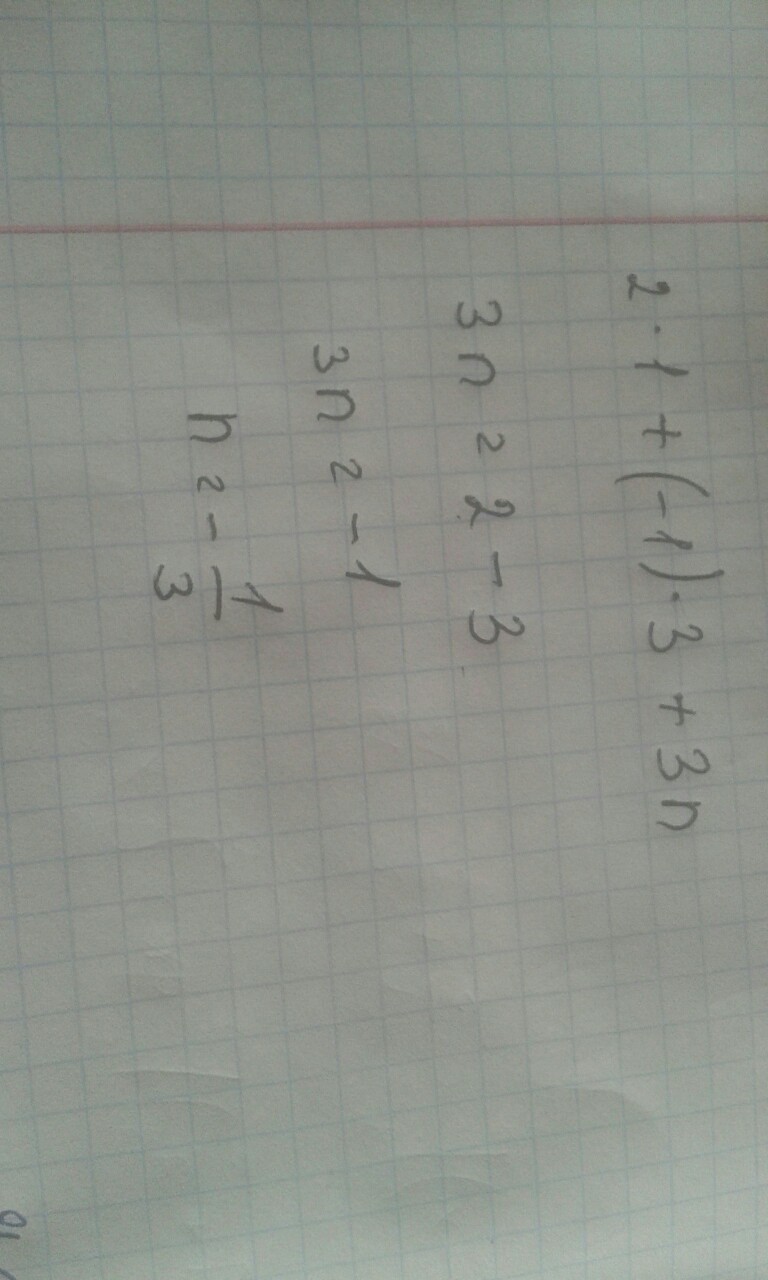 2·1+(-1)·3+3n
3n=2-3
3n=-1
n=-1/3